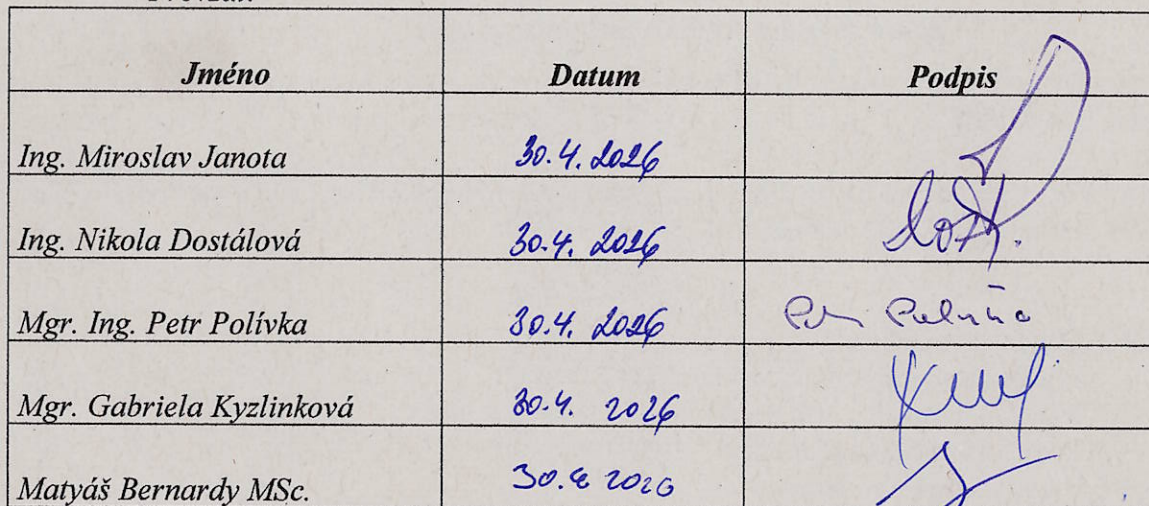 Jméno Datum Podpis
Ing. Miroslav Janota 30.4. 2026
Ing. Nikola Dostálová 30.4. 2026
Mgr. Ing. Petr Polívka 30.4. 2026
Mgr. Gabriela Kyzlinková 30.4. 2026
Matyáš Bernardy MSc. 30.4 2026